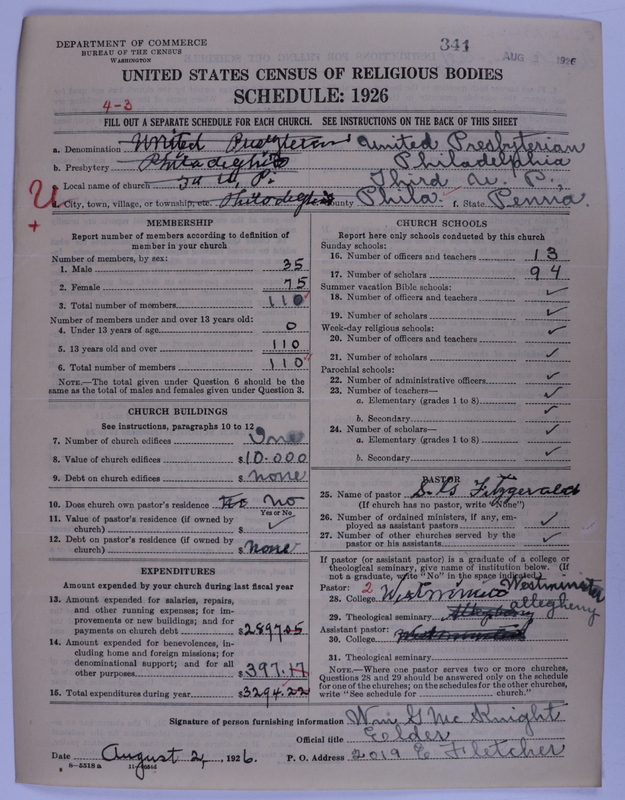 DEPARTMENT OF COMMERCE
BUREAU OF THE CENSUS
WASHINGTON
341
AUG 1926
UNITED STATES CENSUS OF RELIGIOUS BODIES
SCHEDULE: 1926
4-3
FILL OUT A SEPARATE SCHEDULE FOR EACH CHURCH. SEE INSTRUCTIONS ON THE BACK OF THIS SHEET
a. Denomination United Presbyterian United Presbyterian
b. Presbytery Philadelphia Philadelphia
c. Local name of church 3d U. P. Third U. P.,
U d. City, town, village, or township, etc. Philadelphia County Phila. f. State Penna.
+
MEMBERSHIP
Report number of members according to definition of
member in your church
Number of members, by sex:
1. Male 35
2. Female 75
3. Total number of members 110
Number of members under and over 13 years old:
4. Under 13 years of age 0
5. 13 years old and over 110
6. Total number of members 110
NOTE.—The total given under Question 6 should be the
same as the total of males and females given under Question 3.
CHURCH BUILDINGS
See instructions, paragraphs 10 to 12
7. Number of church edifices One
8. Value of church edifices $10.000
9. Debt on church edifices $ none
10. Does church own pastor's residence No no
Yes or No
11. Value of pastor's residence (if owned by
church) $ ✓
12. Debt on pastor's residence (if owned by
church) $ none
EXPENDITURES
Amount expended by your church during last fiscal year
13. Amount expended for salaries, repairs,
and other running expenses; for im-
provements or new buildings; and for
payments on church debt $2897.05
14. Amount expended for benevolences, in-
cluding home and foreign missions; for
denominational support; and for all
other purposes $397.17
15. Total expenditures during year $3294.22
CHURCH SCHOOLS
Report here only schools conducted by this church
Sunday schools:
16. Number of officers and teachers 13
17. Number of scholars 94
Summer vacation Bible schools:
18. Number of officers and teachers ✓
19. Number of scholars ✓
Week-day religious schools:
20. Number of officers and teachers ✓
21. Number of scholars ✓
Parochial schools:
22. Number of administrative officers ✓
23. Number of teachers—
a. Elementary (grades 1 to 8) ✓
b. Secondary ✓
24. Number of scholars—
a. Elementary (grades 1 to 8) ✓
b. Secondary ✓
PASTOR
25. Name of pastor Fitzgerald
(If church has no pastor, write "None")
26. Number of ordained ministers, if any, em-
ployed as assistant pastors ✓
27. Number of other churches served by the
pastor or his assistants ✓
If pastor (or assistant pastor) is a graduate of a college or
theological seminary, give name of institution below. (If
not a graduate, write "No" in the space indicated.)
Pastor: 2
28. College Westminster Westminster
29. Theological seminary Allegheny Allegheny
Assistant pastor:
30. College
31. Theological seminary
NOTE.—Where one pastor serves two or more churches,
Questions 28 and 29 should be answered only on the schedule
for one of the churches; on the schedules for the other churches,
write "See schedule for church."
Signature of person furnishing information Wm G McKnight
Official title Elder
Date August 2, 1926. P. O. Address 2019 E Fletcher
8—5518a